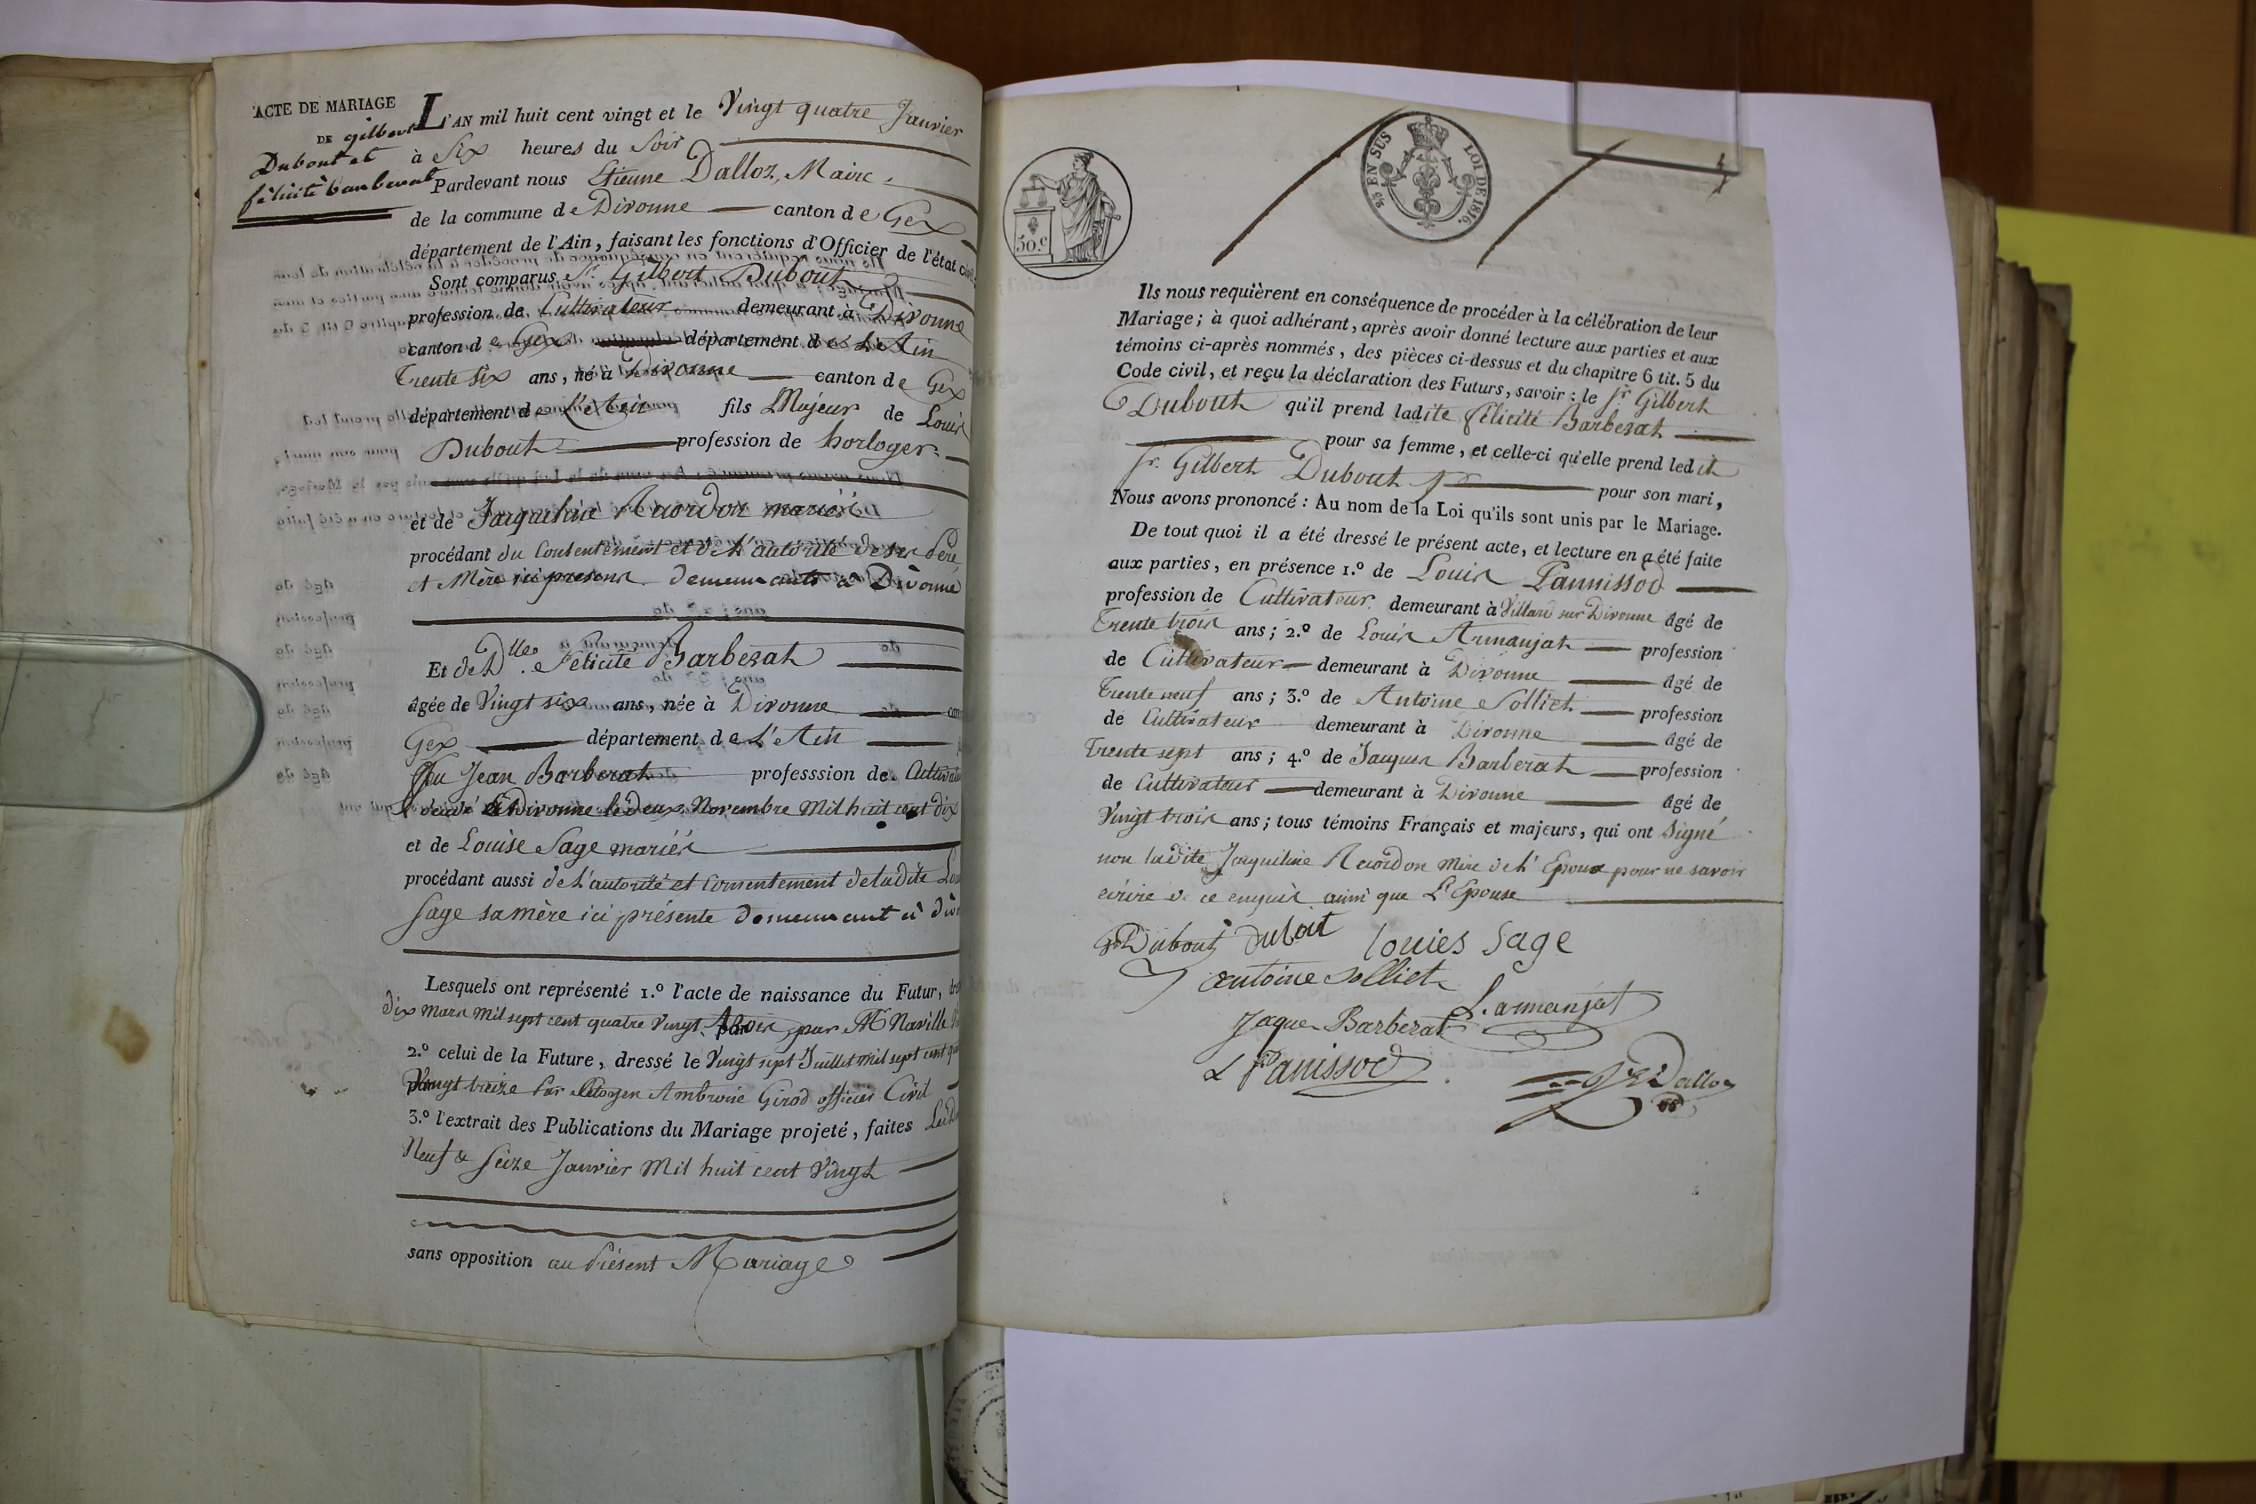 ACTE DE MARIAGE
DE gilbert
Dubout et
félicité barberat
L'AN mil huit cent vingt et le Vingt quatre Janvier
à Six heures du Soir
Pardevant nous Etienne Dalloz, Maire
de la commune de Divonne canton de Gex
département de l'Ain, faisant les fonctions d'Officier de l'état civil
Sont comparus Sr. Gilbert Dubout
profession de Cultivateur demeurant à Divonne
canton de Gex département de L'Ain
Trente six ans, né à Divonne canton de Gex
département de L'Ain fils Majeur de Louis
Dubout profession de horloger
et de Jaqueline Recordon mariés
procédant du Consentement et de L'autorité de ses Père
et Mère ici présens demeurants à Divonne
Et de Dlle. Félicité Barberat
âgée de Vingt six ans, née à Divonne
Gex département de L'Ain
feu Jean Barberat professsion de Cultivate
décédé à Divonne le deux Novembre Mil huit cent dix
et de Louise Sage mariés
procédant aussi de L'autorité et Consentement de ladite Lou
Sage sa mère ici présente demeurant à div
Lesquels ont représenté 1.º l'acte de naissance du Futur,
dix Mars Mil sept cent quatre Vingt trois par Mr Naville
2.º celui de la Future, dressé le Vingt sept Juillet mil sept cent qua
Vingt treize Par Citoyen Ambroise Girod officier Civil
3.º l'extrait des Publications du Mariage projeté, faites Les
Neuf & Seize Janvier Mil huit cent Vingt
sans opposition au Présent Mariage
50.c
EN SUS
LOI DE 1816.
Ils nous requièrent en conséquence de procéder à la célébration de leur
Mariage ; à quoi adhérant, après avoir donné lecture aux parties et aux
témoins ci-après nommés, des pièces ci-dessus et du chapitre 6 tit. 5 du
Code civil, et reçu la déclaration des Futurs, savoir : le Sr Gilbert
Dubout qu'il prend ladite félicité Barberat
pour sa femme, et celle-ci qu'elle prend ledit
Sr. Gilbert Dubout pour son mari,
Nous avons prononcé : Au nom de la Loi qu'ils sont unis par le Mariage.
De tout quoi il a été dressé le présent acte, et lecture en a été faite
aux parties, en présence 1.º de Louis Pannissod
profession de Cultivateur demeurant à Villard sur Divonne âgé de
Trente trois ans ; 2.º de Louis Armanjat profession
de Cultivateur demeurant à Divonne âgé de
Trente neuf ans ; 3.º de Antoine Solliet profession
de Cultivateur demeurant à Divonne âgé de
Trente sept ans ; 4.º de Jacques Barberat profession
de Cultivateur demeurant à Divonne âgé de
Vingt trois ans ; tous témoins Français et majeurs, qui ont Signé
non ladite Jaqueline Recordon Mère de L'Epoux pour ne savoir
écrire de ce enquis ainsi que L'Epouse
Dubout dubout louies Sage
antoine solliet
L. armanjat
Jaque Barberat
L Panissod
Dalloz